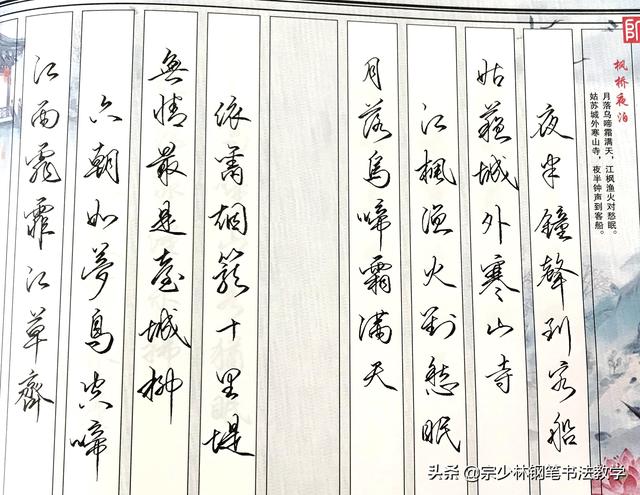 江雨霏霏江草齊
六朝如夢鳥空啼
無情最是臺城柳
依舊烟籠十里堤
月落烏啼霜滿天
江楓漁火對愁眠
姑蘇城外寒山寺
夜半鐘聲到客船
枫桥夜泊
月落乌啼霜满天，江枫渔火对愁眠。
姑苏城外寒山寺，夜半钟声到客船。
头条 @宗少林钢笔书法教学